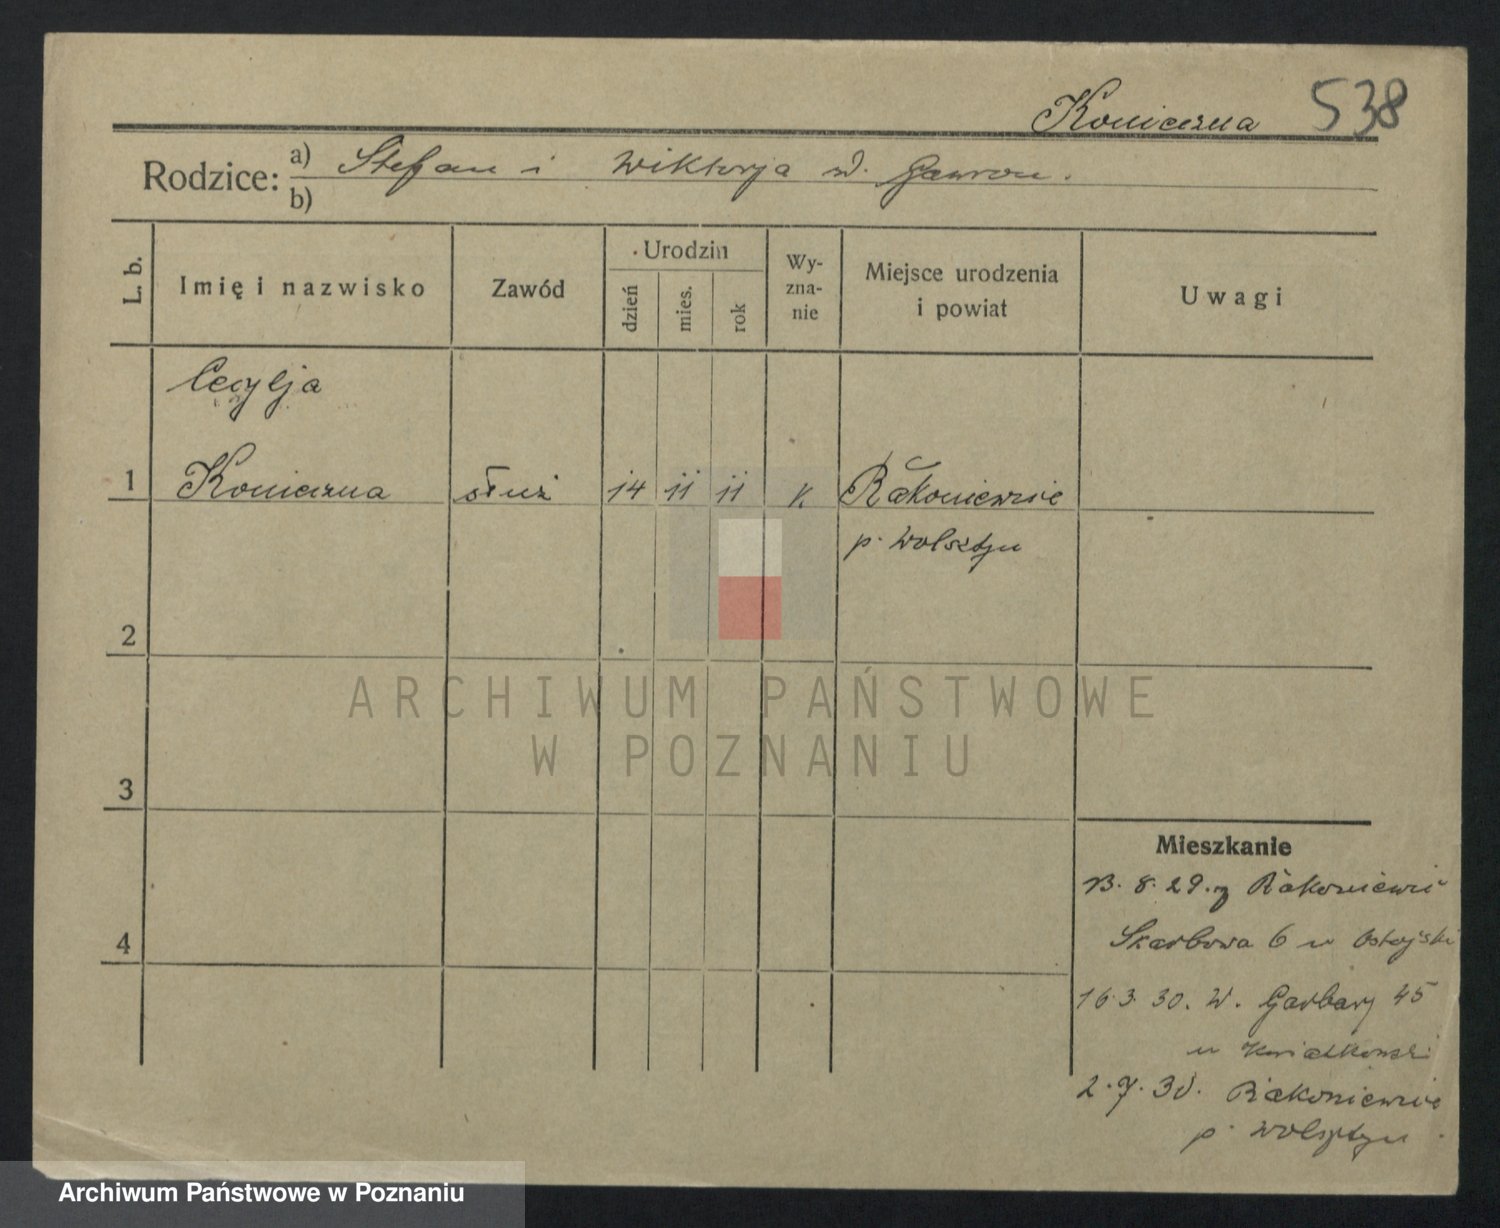 Konieczna 538
Rodzice: a) Stefan i Wiktorja d. Gawron.
b)
L. b.
Imię i nazwisko
Zawód
Urodzin
dzień
mies.
rok
Wy-
zna-
nie
Miejsce urodzenia
i powiat
Uwagi
Cecylja
1 Konieczna służ 14 11 11 k. Rakoniewice
p. Wolsztyn
2
3
4
ARCHIWUM PAŃSTWOWE
W POZNANIU
Mieszkanie
13. 8. 29. z Rakoniewic
Skarbowa 6 u Ostojski
16. 3. 30. W. Garbary 45
u Kwiatkowski
2. 7. 30. Rakoniewice
p. Wolsztyn
Archiwum Państwowe w Poznaniu